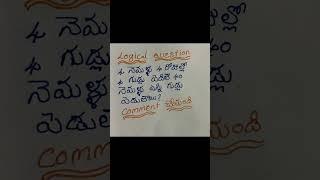 Logical Question
4 నెమళ్లు 4 రోజుల్లో
4 గుడ్లు పెడితే 40
నెమళ్లు ఎన్ని గుడ్లు
పెడుతాయి?
Comment చేయండి